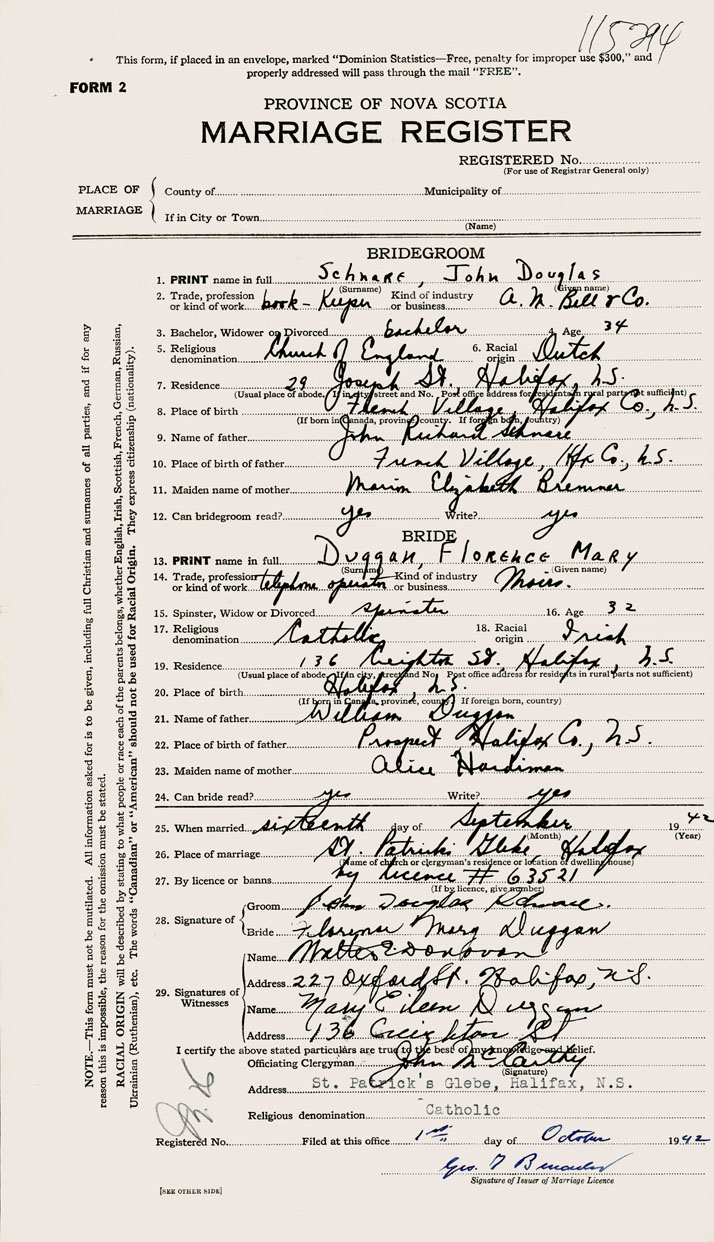 115294
This form, if placed in an envelope, marked "Dominion Statistics—Free, penalty for improper use $300," and
properly addressed will pass through the mail "FREE".
FORM 2
PROVINCE OF NOVA SCOTIA
MARRIAGE REGISTER
REGISTERED No.
(For use of Registrar General only)
PLACE OF MARRIAGE
County of Municipality of
If in City or Town
(Name)
BRIDEGROOM
1. PRINT name in full Schnare, John Douglas
(Surname) (Given name)
2. Trade, profession or kind of work book-Keeper Kind of industry or business A. M. Bell & Co.
3. Bachelor, Widower or Divorced bachelor 4. Age 34
5. Religious denomination Church of England 6. Racial origin Dutch
7. Residence 29 Joseph St., Halifax, N.S.
(Usual place of abode. If in city street and No. Post office address for residents in rural parts not sufficient)
8. Place of birth French Village, Halifax Co., N.S.
(If born in Canada, province, county. If foreign born, country)
9. Name of father John Richard Schnare
10. Place of birth of father French Village, Hfx Co., N.S.
11. Maiden name of mother Marion Elizabeth Bremner
12. Can bridegroom read? yes Write? yes
BRIDE
13. PRINT name in full Duggan, Florence Mary
(Surname) (Given name)
14. Trade, profession or kind of work telephone operator Kind of industry or business Moirs.
15. Spinster, Widow or Divorced spinster 16. Age 32
17. Religious denomination Catholic 18. Racial origin Irish
19. Residence 136 Creighton St., Halifax, N.S.
(Usual place of abode. If in city, street and No. Post office address for residents in rural parts not sufficient)
20. Place of birth Halifax, N.S.
(If born in Canada, province, county. If foreign born, country)
21. Name of father William Duggan
22. Place of birth of father Prospect Halifax Co., N.S.
23. Maiden name of mother Alice Hardiman
24. Can bride read? yes Write? yes
25. When married sixteenth day of September 1942
(Month) (Year)
26. Place of marriage St. Patricks Glebe Halifax
(Name of church or clergyman's residence or location of dwelling house)
27. By licence or banns by Licence # 63521
(If by licence, give number)
28. Signature of Groom John Douglas Schnare.
Bride Florence Mary Duggan
29. Signatures of Witnesses
Name Walter E Donovan
Address 227 Oxford St. Halifax, N.S.
Name Mary Eileen Duggan
Address 136 Creighton St
I certify the above stated particulars are true to the best of my knowledge and belief.
Officiating Clergyman John McCarthy
(Signature)
Address St. Patrick's Glebe, Halifax, N.S.
Religious denomination Catholic
Registered No. Filed at this office 1st day of October 1942
Signature of Issuer of Marriage Licence
[SEE OTHER SIDE]
NOTE.—This form must not be mutilated. All information asked for is to be given, including full Christian and surnames of all parties, and if for any
reason this is impossible, the reason for the omission must be stated.
RACIAL ORIGIN will be described by stating to what people or race each of the parents belongs, whether English, Irish, Scottish, French, German, Russian,
Ukrainian (Ruthenian), etc. The words "Canadian" or "American" should not be used for Racial Origin. They express citizenship (nationality).